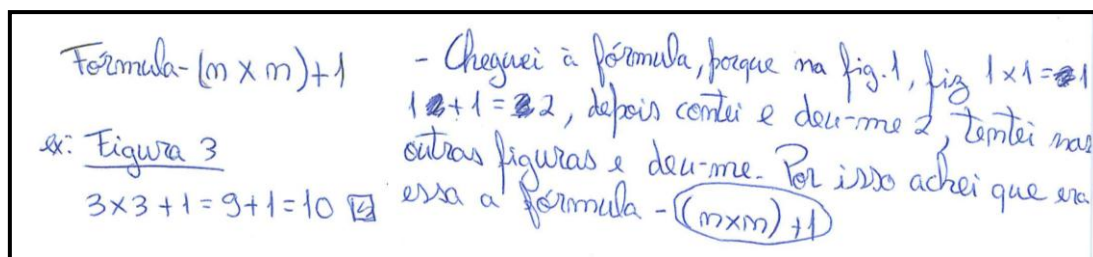 Fórmula - (n x n) + 1
ex: Figura 3
3 x 3 + 1 = 9 + 1 = 10
- Cheguei à fórmula, porque na fig. 1, fiz 1 x 1 = 1
1 + 1 = 2, depois contei e deu-me 2, tentei nas
outras figuras e deu-me. Por isso achei que era
essa a fórmula - (n x n) + 1